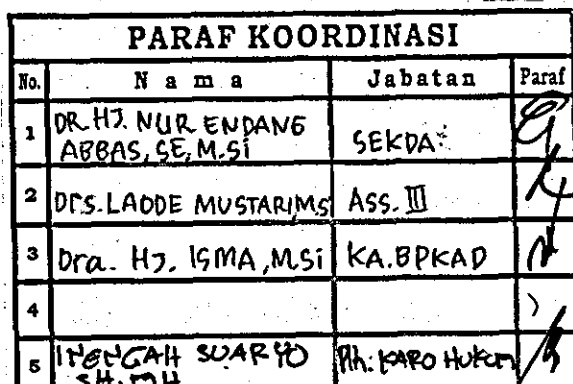 PARAF KOORDINASI
No. Nama Jabatan Paraf
1 DR.HJ. NUR ENDANG ABBAS, SE, M.Si SEKDA
2 Drs. LAODE MUSTARI, MS Ass. III
3 Dra. HJ. ISMA, M.Si KA. BPKAD
4
5 I NENGAH SUARYO SH. MH Plh. KARO HUKUM